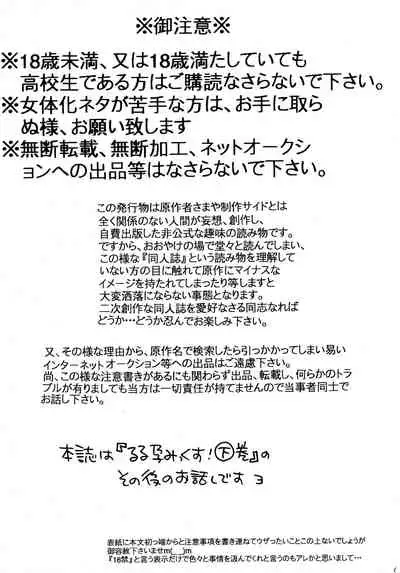 ※御注意※
※18歳未満、又は18歳満たしていても
高校生である方はご購読なさらないで下さい。
※女体化ネタが苦手な方は、お手に取ら
ぬ様、お願い致します
※無断転載、無断加工、ネットオークシ
ョンへの出品等はなさらないで下さい。
この発行物は原作者さまや制作サイドとは
全く関係のない人間が妄想、創作し、
自費出版した非公式な趣味の読み物です。
ですから、おおやけの場で堂々と読んでしまい、
この様な『同人誌』という読み物を理解して
いない方の目に触れて原作にマイナスな
イメージを持たれてしまったり等しますと
大変洒落にならない事態となります。
二次創作な同人誌を愛好なさる同志なれば
どうか…どうか忍んでお楽しみ下さい。
又、その様な理由から、原作名で検索したら引っかかってしまい易い
インターネットオークション等への出品はご遠慮下さい。
尚、この様な注意書きがあるにも関わらず出品、転載し、何らかのトラ
ブルが有りましても当方は一切責任が持てませんので当事者同士で
お話し下さい。
本誌は『るる孕みっくす!下巻』の
その後のお話しですヨ
表紙に本文初っ端からと注意事項を書き連ねてウザったいことこの上ないでしょうが
御容赦下さいませm(__)m
『18禁』と言う表示だけで色々と事情を汲んでくれと言うのもアレかと思いまして…